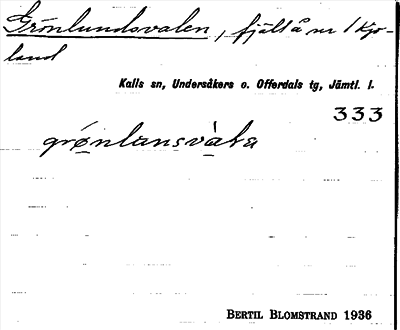 Grönlundsvalen, fjäll å nr 1 Kjo-
land
Kalls sn, Undersåkers o. Offerdals tg, Jämtl. l.
333
grǿnlansvàla
BERTIL BLOMSTRAND 1936